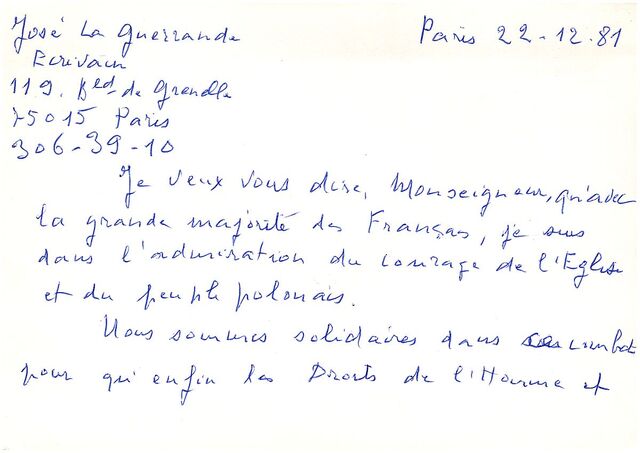 José La Guerrande
Ecrivain
119. Bled de Grenelle
75015 Paris
306-39-10
Paris 22-12.81
Je veux vous dire, Monseigneur, qu'avec
la grande majorité des Français, je suis
dans l'admiration du courage de l'Eglise
et du peuple polonais.
Nous sommes solidaires dans ce combat
pour qu'enfin les Droits de l'Homme et